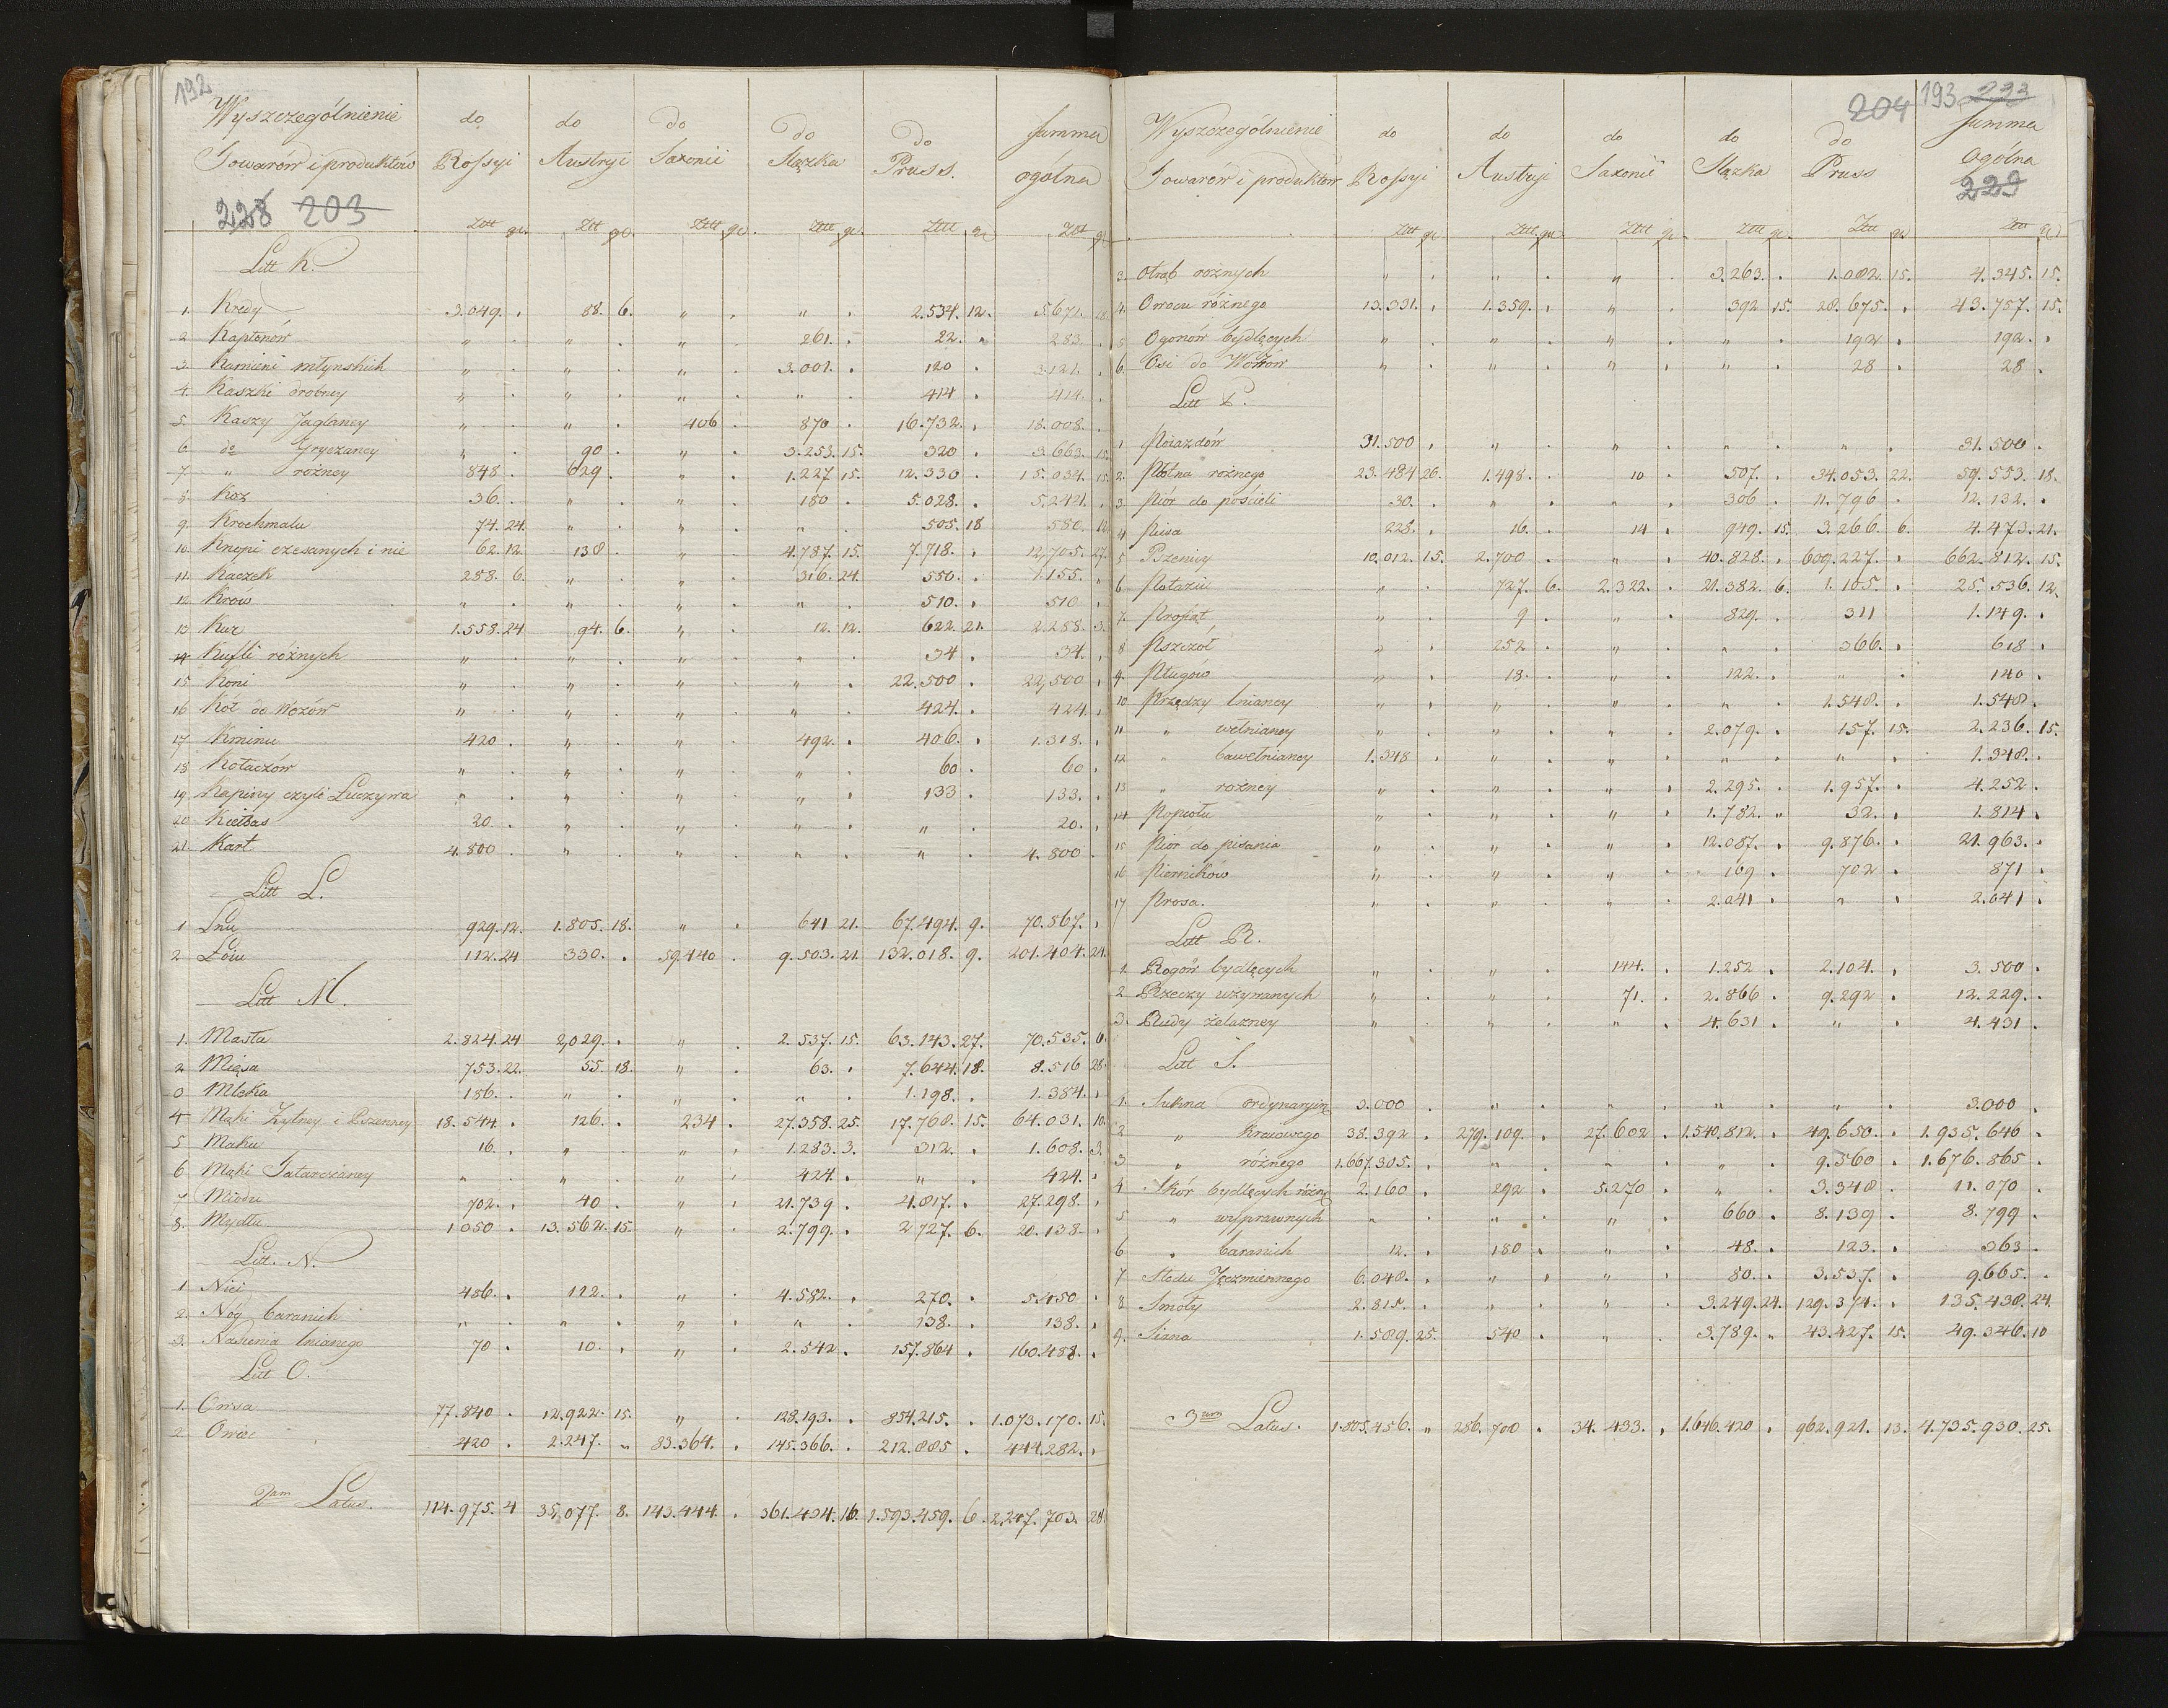 192
Wyszczególnienie do do do do do Summa
Towarów i produktów Rossyi Austryi Saxonii Slązka Pruss. ogólna
228 203
Złtt gr. Złtt gr. Złtt gr. Złtt gr. Złtt gr. Złtt gr.
Litt K.
1. Kredy 3.049. 88. 6. " " 2.534. 12. 5.671. 18
2 Kapłonów " " " 261. 22. 283.
3. Kamieni młynskich " " " 3.001. 120 3.121.
4. Kaszki drobney " " " " 414 414.
5. Kaszy Jaglaney " " 406 870 16.732. 18.008.
6 do Gryczaney " 90 " 3.253. 15. 320 3.663. 15.
7. " rożney 848. 629. " 1.227 15. 12.330 15.034. 15.
8. Koz 36. " " 180 5.028. 5.244.
9. Krochmalu 74. 24. " " " 505. 18 580. 12
10. Knopi czesanych i nie 62. 12. 138. " 4.787. 15. 7.718. 12,705. 27.
11. Kaczek 288. 6. " " 316. 24. 550. 1.155. "
12 Krów " " " " 510. 510
13 Kur 1.558. 24 94. 6. " 12. 12. 622. 21. 2.288. 3.
14 Kufli rożnych " " " " 34 34.
15 Koni " " " " 22.500 22,500
16 Kół do Wozów " " " " 424. 424.
17 Kminu 420 " " 492. 406. 1.318.
18 Kołaczów " " " " 60 60
19 Kapiny czyli Łuczywa " " " " 133 133.
20 Kiełbas 20. " " " " 20.
21. Kart 4.800 " " " " 4.800
Litt L.
1 Lnu 929. 12. 1.805. 18. " 641 21. 67.494. 9. 70.867.
2 Łoiu 112. 24 330. 59.440 9.503. 21. 132.018. 9. 201.404. 24.
Litt M.
1. Masła 2.824. 24 2,029. " 2.537. 15. 63.143. 27. 70.535. 6.
2 Mięsa 753. 22. 55 18. " 63. 7.644. 18. 8.516 28.
3 Mleka 186. " " " 1.198. 1.384.
4 Mąki Żytney i Pszenney 18.544. 126. 234 27.358. 25. 17.768. 15. 64.031. 10.
5 Maku 16. " " 1.283. 3. 312. 1.608. 3.
6 Mąki Tatarczaney " " " 424. " 424.
7 Miodu 702. 40 " 21.739 4.817. 27.298.
8. Mydła 1.050 13.562. 15. " 2.799. 2727. 6. 20.138.
Litt. N.
1 Nici 486. 112. " 4.582. 270. 5.450
2. Nóg baranich " " " " 138. 138.
3. Nasienia lnianego 70 10. " 2.542 157.864 160.488.
Litt O.
1. Owsa 77.840 12.922. 15. " 128.193. 854.215. 1.073.170. 15.
2 Owiec 420 2.247. " 83.364. 145.366. 212.885 444.282.
2dum Latus. 114.975. 4 35,077. 8. 143.444. 361.434. 16. 1.593.459. 6. 2.247.703. 28.
204 193 223
Wyszczególnienie do do do do do Summa
Towarów i produktów Rossyi Austryi Saxonii Slązka Pruss Ogólna
229
Złtt gr Złtt gr Złtt gr Złtt gr Złtt gr Złtt gr
3. Otrąb rożnych " " " 3.263. 1.082. 15. 4.345. 15.
4. Owocu różnego 13.331. 1.359. " 392 15. 28.675. 43.757. 15.
5 Ogonów bydlęcych " " " " 192 192.
6. Osi do Wozów " " " " 28 28
Litt P.
1 Poiazdów 31.500 " " " " 31.500
2. Płótna rożnego 23.484 26. 1.498. 10 507. 34.053. 22. 59.553. 18.
3. Piór do pościeli 30. " " 306 11.796 12.132.
4 Piwa 228. 16. 14 949. 15. 3.266. 6. 4.473. 21.
5 Pszenicy 10.012. 15. 2.700 " 40.828. 609.227. 662.812. 15.
6 Potaziu " 727. 6. 2.322. 21.382 6. 1.105. 25.536. 12.
7. Prosiąt " 9 " 829. 311 1.149.
8 Pszczół " 252 " " 366. 618
9. Pługów " 18. " 122. " 140
10 Przędzy lnianey " " " " 1.548. 1.548.
11 " wełnianey " " " 2.079. 157. 15. 2.236. 15.
12 " bawełnianey 1.348 " " " " 1.348.
13 " rożney " " " 2.295. 1.957. 4.252.
14 Popiołu " " " 1.782. " 32. 1.814
15 Piór do pisania " " " 12.087. 9.876. 21.963.
16 Pierników " " " 169 702 871
17 Prosa. " " " 2.041 " 2.041
Litt R.
1. Rogów bydlęcych " " 144. 1.252 2.104. 3.500
2 Rzeczy używanych " " 71. 2.866 9.292 12.229.
3. Rudy żelazney " " " 4.631 " 4.431
Litt S.
1. Sukna ordynaryin. 3.000 " " " " 3.000
2 " kraiowego 38.392 279.109. 27.602 1.540.812. 49.650. 1.935.646
3. " różnego 1.667.305. " " " 9.560 1.676.865
4 Skór bydlęcych różn. 2.160 292 5.270 " 3.348 11.070
5 " wyprawnych " " " 660 8.139 8.799
6 " baranich 12. 180 " 48. 123. 363
7 Słodu Jęczmiennego 6.048. " " 80. 3.537. 9.665.
8 Smoły 2.815. " " 3.249. 24. 129.374. 135.438. 24.
9. Siana 1.589. 25. 540 " 3.789. " 43.427. 15. 49.346. 10
3um Latus. 1.805.456. " 286.700 34.433. 1.646.420 962.921. 13. 4.735.930. 25.